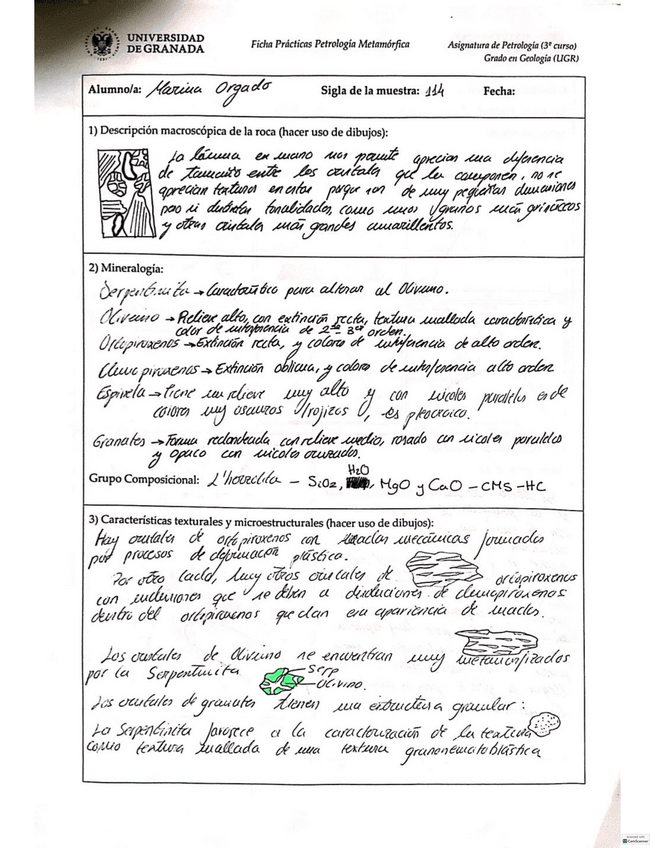 UNIVERSIDAD
DE GRANADA
Ficha Prácticas Petrología Metamórfica
Asignatura de Petrología (3º curso)
Grado en Geología (UGR)
Alumno/a: Marina Orgado Sigla de la muestra: 114 Fecha:
1) Descripción macroscópica de la roca (hacer uso de dibujos):
La lámina en mano nos permite apreciar una diferencia
de tamaño entre los cristales que la componen, no se
aprecian texturas en estas porque son de muy pequeñas dimensiones
pero si distintas tonalidades, como unos granos más grisáceos
y otros cristales más grandes amarillentos.
2) Mineralogía:
Serpentinita → Característico para alterar al Olivino.
Olivino → Relieve alto, con extinción recta, textura mallada característica y
color de interferencia de 2do - 3er orden.
Ortopiroxenos → Extinción recta, y colores de interferencia de alto orden.
Clinopiroxenos → Extinción oblicua, y colores de interferencia alto orden
Espinela → Tiene un relieve muy alto y con nicoles paralelos es de
colores muy oscuros rojizos, es pleocroico.
Granates → Forma redondeada con relieve medio, rosado con nicoles paralelos
y opaco con nicoles cruzados.
Grupo Composicional: L'herzolita – SiO2, H2O, MgO y CaO – CMS – HC
3) Características texturales y microestructurales (hacer uso de dibujos):
Hay cristales de ortopiroxenos con maclas mecánicas formados
por procesos de deformación plástica.
Por otro lado, hay otros cristales de ortopiroxenos
con inclusiones que se deben a disoluciones de clinopiroxenos
dentro del ortopiroxenos que dan esa apariencia de maclas.
Los cristales de Olivino se encuentran muy metamorfizados
por la Serpentinita
Serp
Olivino.
Los cristales de granates tienen una estructura granular:
La Serpentinita favorece a la caracterización de la textura
como textura mallada de una textura granonematoblástica